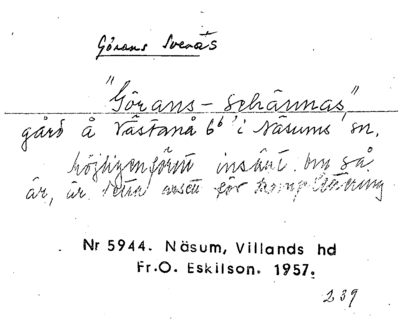 Görans Svenås
"Görans-Schännas"
gård å Västanå 6b i Näsums sn,
höjligen förut insänt. Om så
är, är detta avsett för komplettering
Nr 5944. Näsum, Villands hd
Fr.O. Eskilson. 1957.
239